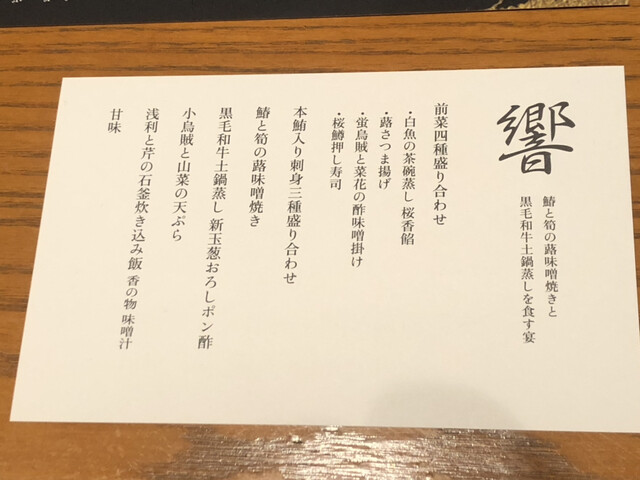 響
鰆と筍の蕗味噌焼きと
黒毛和牛土鍋蒸しを食す宴
前菜四種盛り合わせ
・白魚の茶碗蒸し 桜香餡
蕗さつま揚げ
・蛍烏賊と菜花の酢味噌掛け
・桜鱒押し寿司
本鮪入り刺身三種盛り合わせ
鰆と筍の蕗味噌焼き
黒毛和牛土鍋蒸し 新玉葱おろしポン酢
小烏賊と山菜の天ぷら
浅利と芹の石釜炊き込み飯 香の物 味噌汁
甘味